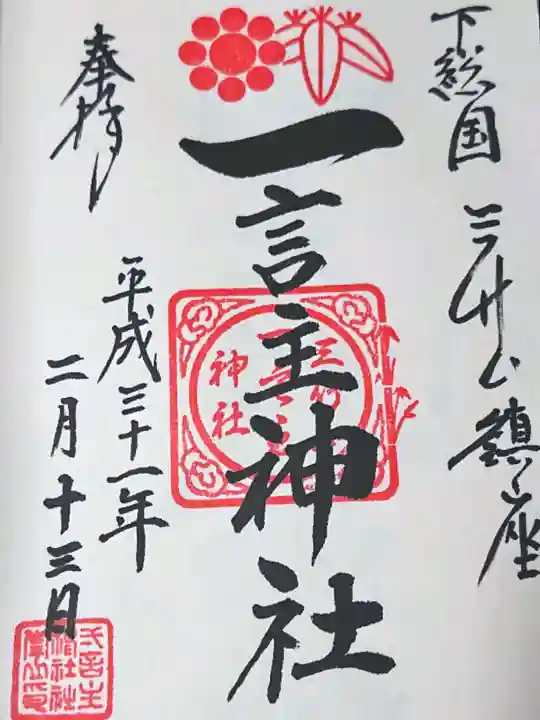 下総国 三竹山鎮座
一言主神社
奉拝
平成三十一年
二月十三日
神社